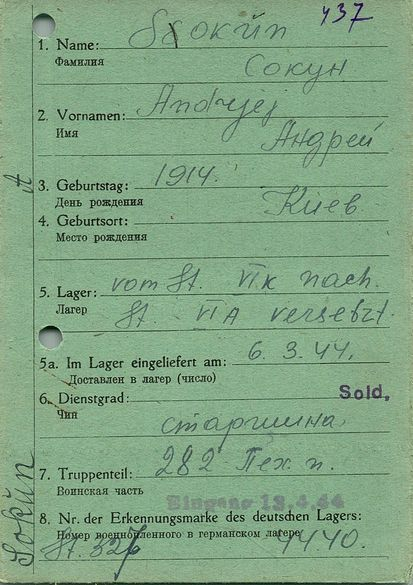 437
1. Name: Sokŭn
Фамилия Сокун
2. Vornamen: Andrjej
Имя Андрей
3. Geburtstag: 1914.
День рождения
Киев.
4. Geburtsort:
Место рождения
5. Lager: vom St. VI K nach.
Лагерь St. VI A versetzt.
5a. Im Lager eingeliefert am: 6. 3. 44.
Доставлен в лагерь (число)
Sold.
6. Dienstgrad:
Чин старшина
7. Truppenteil: 282 Пех. п.
Воинская часть
Eingang 13.4.44
8. Nr. der Erkennungsmarke des deutschen Lagers:
Номер военнопленного в германском лагере
St. 326
Sokŭn A